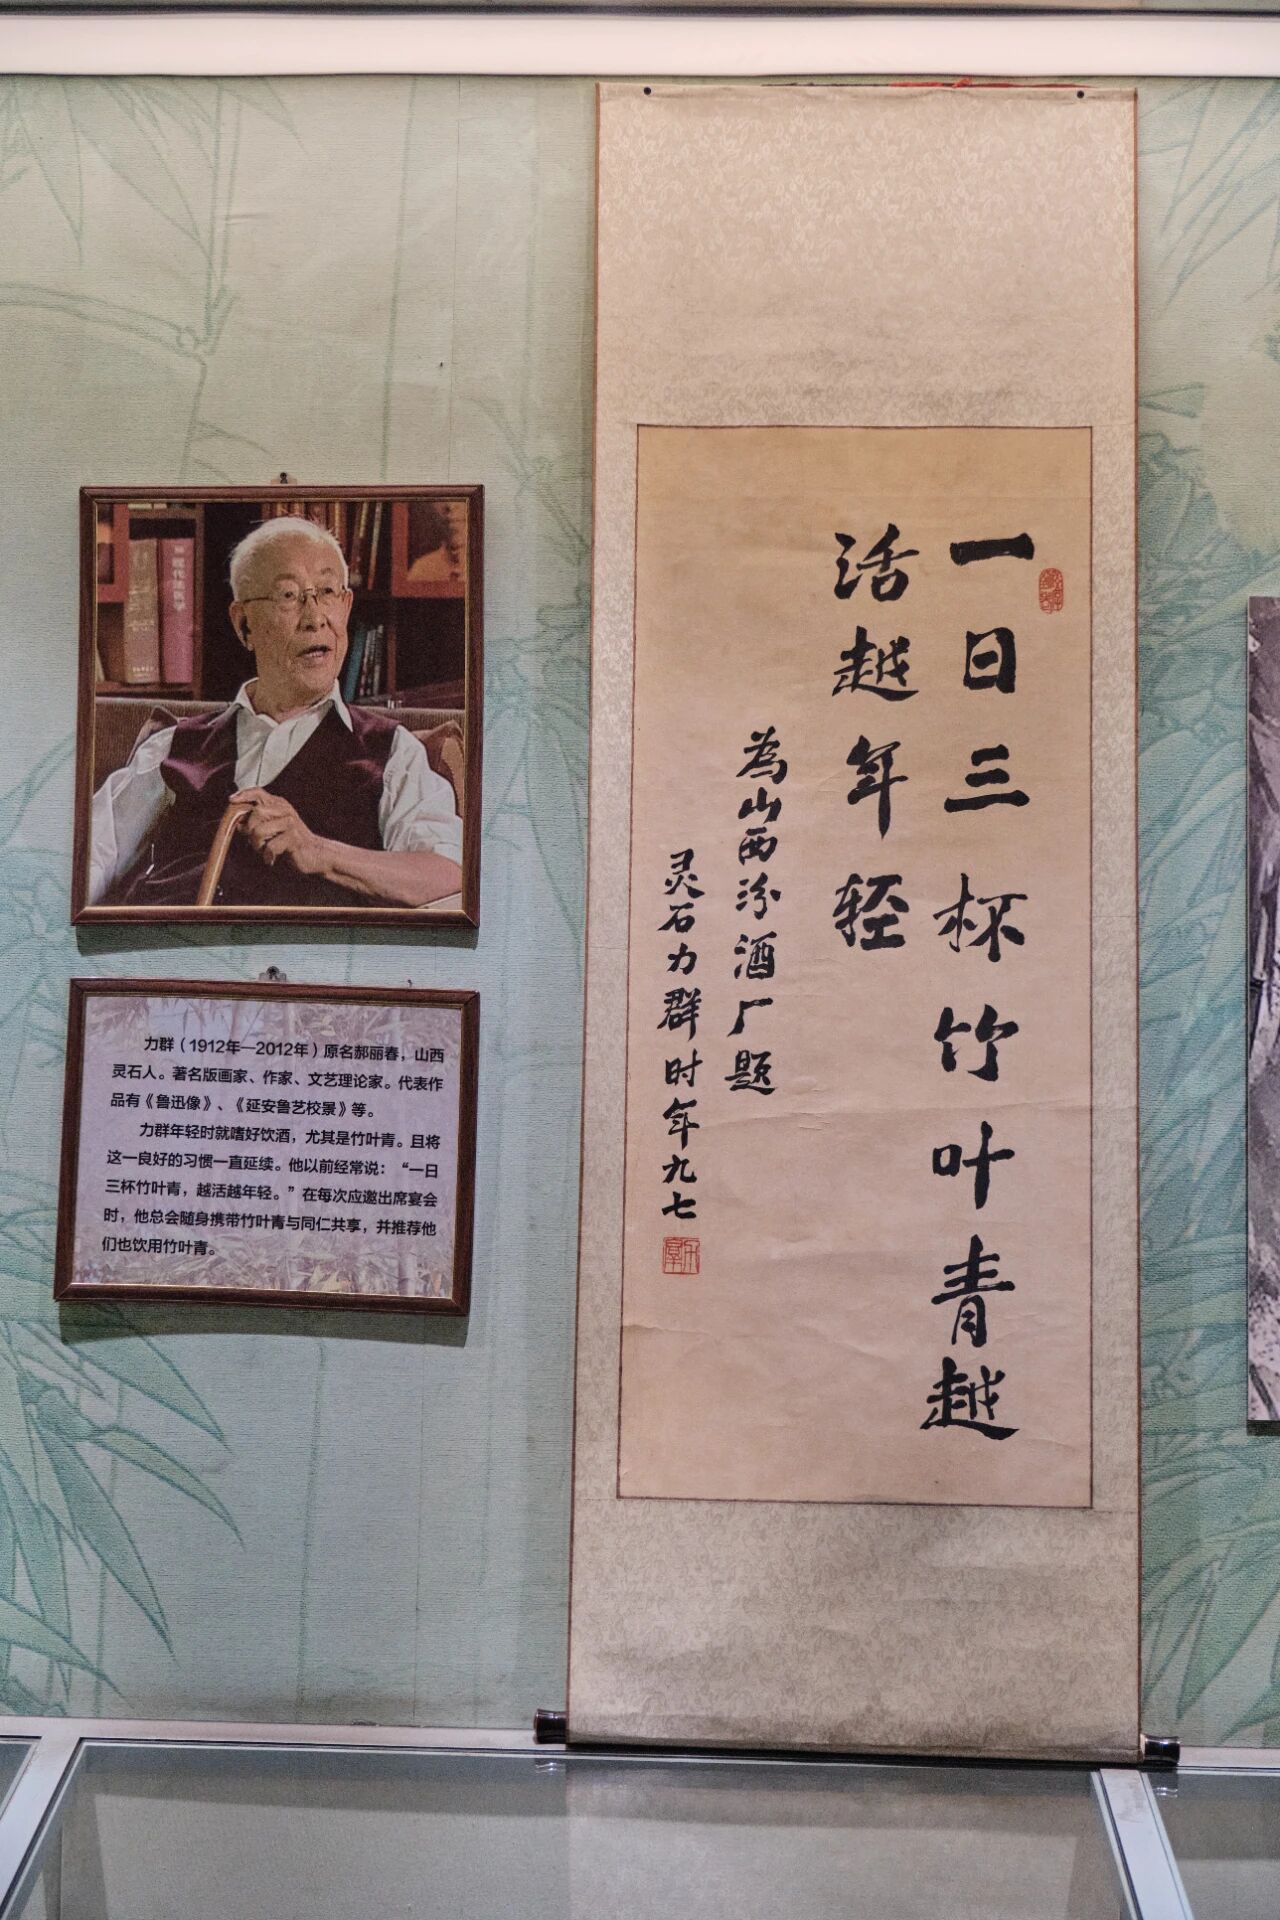 力群（1912年—2012年）原名郝丽春，山西
灵石人。著名版画家、作家、文艺理论家。代表作
品有《鲁迅像》、《延安鲁艺校景》等。
力群年轻时就嗜好饮酒，尤其是竹叶青。且将
这一良好的习惯一直延续。他以前经常说：“一日
三杯竹叶青，越活越年轻。”在每次应邀出席宴会
时，他总会随身携带竹叶青与同仁共享，并推荐他
们也饮用竹叶青。
一日三杯竹叶青越
活越年轻
為山西汾酒厂题
灵石力群时年九七